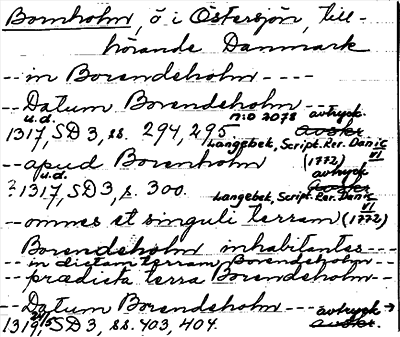 Bornholm, ö i Östersjön, till-
hörande Danmark
--in Borendeholm----
--Datum Borendeholm---
u.d. n:o 2078 avtryck.
1317, SD 3, ss. 294, 295. Avskr.
Langebek, Script. Rer. Danic VI
--apud Borenholm (1772)
u.d. avtryck
? 1317, SD 3, s. 300. Avskr.
Langebek, Script. Rer. Danic VI
--omnes et singuli terram (1772)
Borendeholm inhabitantes---
--in dictam terram Borendeholm---
--prædicta terra Borendeholm--
--Datum Borendeholm--- avtryck →
1319, SD 3, ss. 403, 404. avskr.